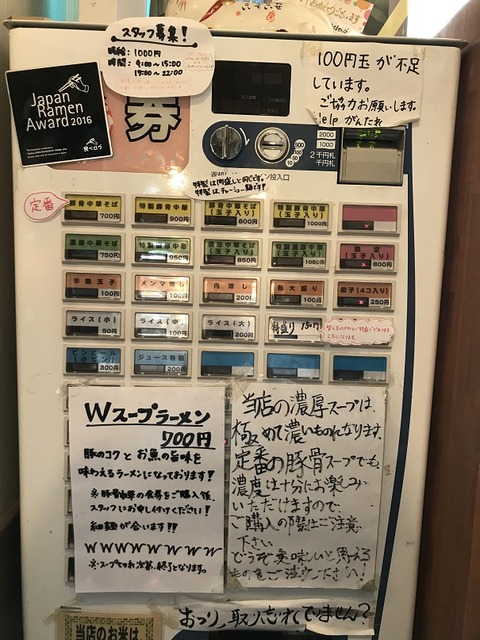 スタッフ募集！
時給：1000円
時間：9:00〜15:00
17:00〜22:00
Japan
Ramen
Award 2016
食べログ
券
100円玉が不足
しています。
ご協力お願いします。
help がんたれ
2000
1000
2千円札
千円札
500
100
50
10
定番
豚骨中華そば
700円
特製豚骨中華
900円
豚骨中華そば
(玉子入り)
800円
特製豚骨中華
(玉子入り)
1000円
濃厚中華そば
750円
特製濃厚中華
950円
濃厚中華そば
(玉子入り)
850円
特製濃厚中華
(玉子入り)
1050円
限定
(玉子入り)
800円
半熟玉子
100円
メンマ増し
100円
肉増し
200円
麺大盛り
100円
餃子(4コ入り)
250円
ライス(小)
50円
ライス(中)
100円
ライス(大)
200円
特盛り 150円
300円
ジュース各種
200円
Wスープラーメン
700円
豚のコクとお魚の旨味を
味わえるラーメンになっております！
※豚骨中華の食券をご購入後、
スタッフにお申し付けください！
細麺が合います!!
WWWWWWWW
※スープきれ次第、終了となります。
当店の濃厚スープは、
極めて濃いものになります。
定番の豚骨スープでも、
濃度は十分にお楽しみ
いただけますので、
ご購入の際はご注意
下さい
どうぞ美味しいと思える
おつり、取り忘れていませんか？
当店のお米は、